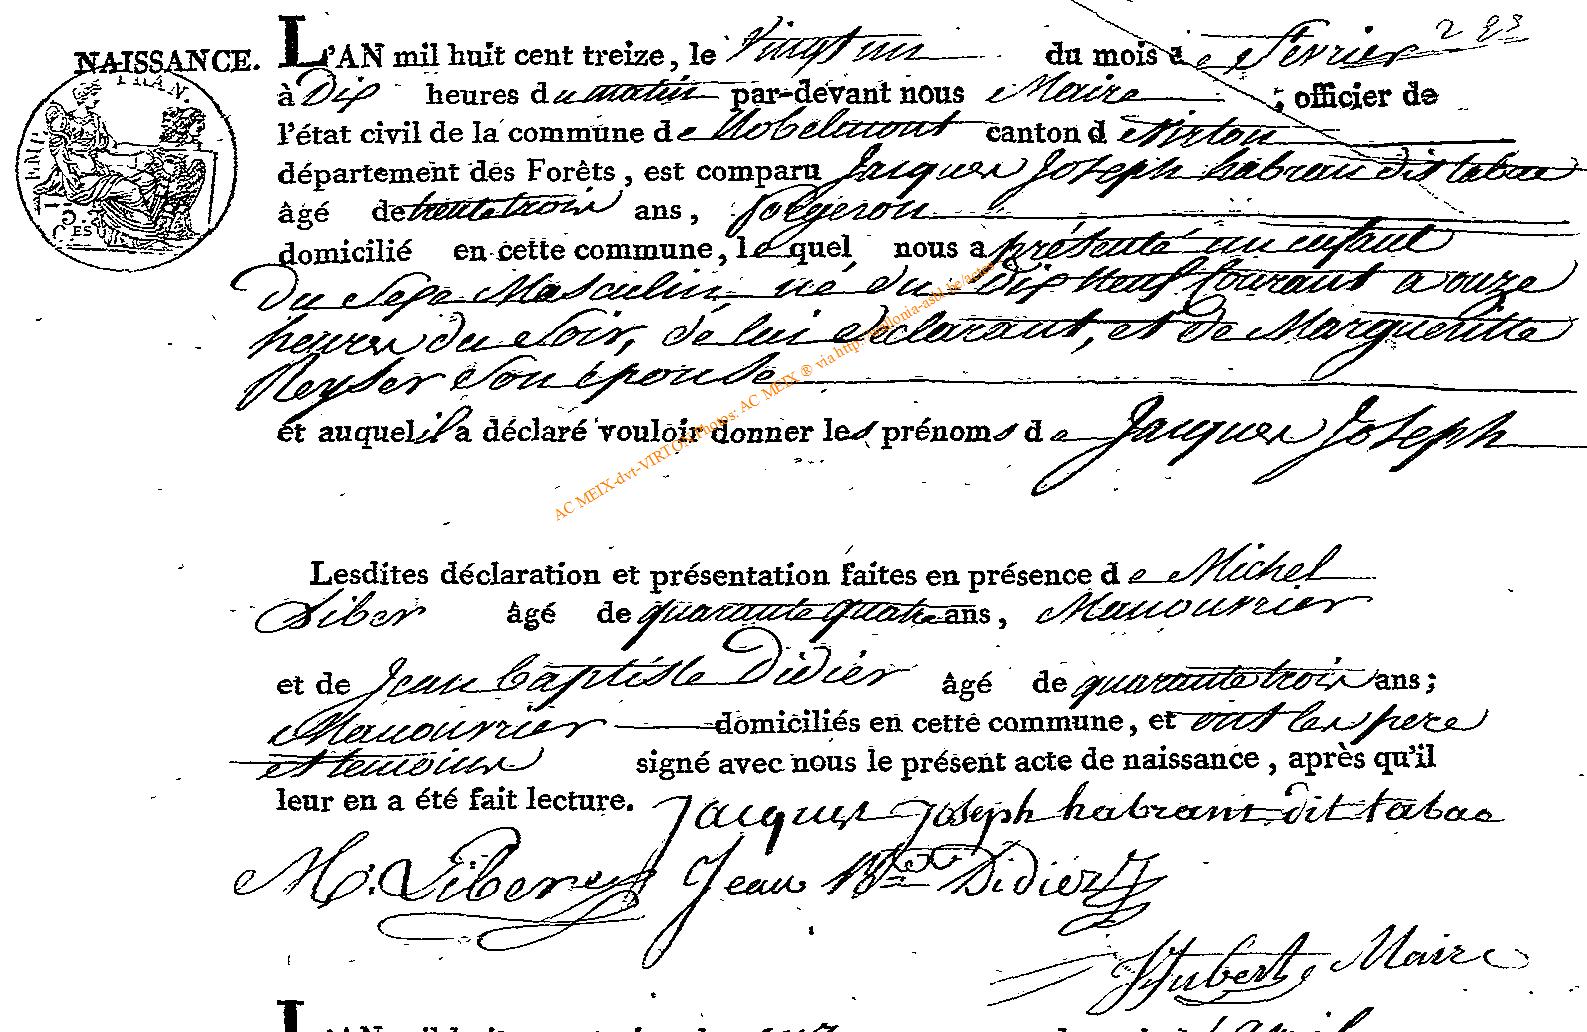 NAISSANCE. L'AN mil huit cent treize, le Vingt un du mois de Fevrier
à Dix heures du matin par-devant nous Maire ; officier de
l'état civil de la commune de Robelmont canton d Virton
département des Forêts, est comparu Jacques Joseph habran dit tabac
âgé de trente trois ans, forgeron
domicilié en cette commune, lequel nous a présenté un enfant
Du Sexe Masculin, né du Dix Neuf Courant a onze
heures du Soir, de lui Déclarant, et de Margueritte
Reyser Son épouse
et auquel il a déclaré vouloir donner les prénoms de Jacques Joseph
Lesdites déclaration et présentation faites en présence de Michel
Liber âgé de quarante quatre ans, Manouvrier
et de Jean baptiste Didier âgé de quarante trois ans;
Manouvrier domiciliés en cette commune, et ont les pere
et temoins signé avec nous le présent acte de naissance, après qu'il
leur en a été fait lecture. Jacques Joseph habrant dit tabac
M. Liber Jean Bte Didier
Hubert Maire
AC MEIX-dvt-VIRTON Photos: AC MEIX ® via
L'AN